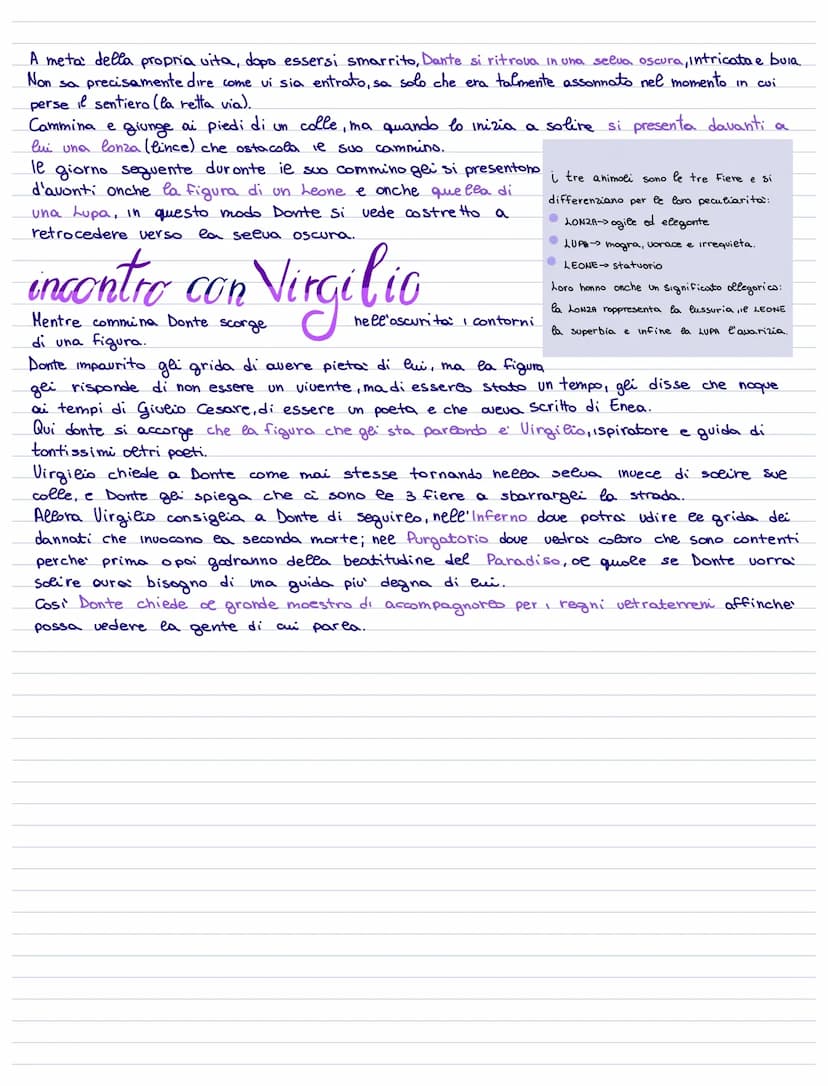 A metà della propria vita, dopo essersi smarrito, Dante si ritrova in una selva oscura, intricata e buia
Non sa precisamente dire come vi sia entrato, sa solo che era talmente assonnato nel momento in cui
perse il sentiero (la retta via).
Cammina e giunge ai piedi di un colle, ma quando lo inizia a salire si presenta davanti a
lui una lonza (lince) che ostacola il suo cammino.
Il giorno seguente durante il suo cammino gli si presentano
d'avanti anche la figura di un Leone e anche quella di
una Lupa, in questo modo Dante si vede costretto a
retrocedere verso la selva oscura.
i tre animali sono le tre Fiere e si
differenziano per le loro peculiarità:
LONZA→ agile ed elegante
LUPA→ magra, vorace e irrequieta.
LEONE→ statuario
Loro hanno anche un significato allegorico:
la LONZA rappresenta la lussuria, il LEONE
la superbia e infine la LUPA l'avarizia.
incontro con Virgilio
Mentre cammina Dante scorge nell'oscurità i contorni
di una figura.
Dante impaurito gli grida di avere pietà di lui, ma la figura
gli risponde di non essere un vivente, ma di esserlo stato un tempo, gli disse che naque
ai tempi di Giulio Cesare, di essere un poeta e che aveva scritto di Enea.
Qui dante si accorge che la figura che gli sta parlando è Virgilio, ispiratore e guida di
tantissimi altri poeti.
Virgilio chiede a Dante come mai stesse tornando nella selva invece di salire sul
colle, e Dante gli spiega che ci sono le 3 fiere a sbarrargli la strada.
Allora Virgilio consiglia a Dante di seguirlo, nell'Inferno dove potrà udire le grida dei
dannati che invocano la seconda morte; nel Purgatorio dove vedrà coloro che sono contenti
perchè prima o poi godranno della beatitudine del Paradiso, al quale se Dante vorrà
salire avrà bisogno di una guida più degna di lui.
Così Dante chiede al grande maestro di accompagnarlo per i regni ultraterreni affinchè
possa vedere la gente di cui parla.